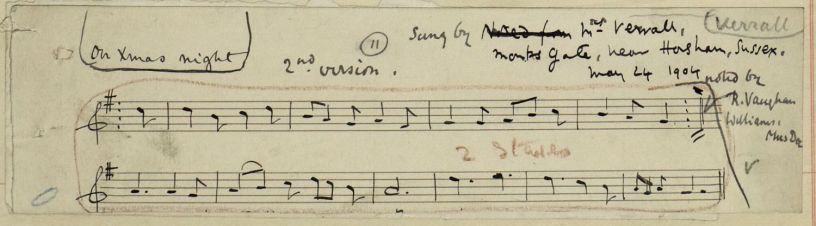 On Xmas night
2nd version.
11
Sung by Noted from Mrs Verrall,
Monks Gate, near Horsham, Sussex.
May 24 1904
Verrall
noted by
R. Vaughan
Williams.
Mus Doc
2 Staves